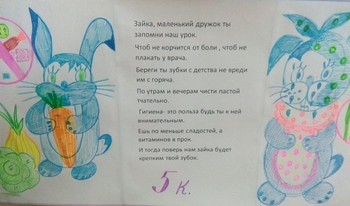 Зайка, маленький дружок ты
запомни наш урок.
Чтоб не корчится от боли , чтоб не
плакать у врача.
Береги ты зубки с детства не вреди
им с горяча.
По утрам и вечерам чисти пастой
тчательно.
Гигиена- это польза будь ты к ней
внимательным.
Ешь по меньше сладостей, а
витаминов в прок.
И тогда поверь нам зайка будет
крепним твой зубок.
5 к.